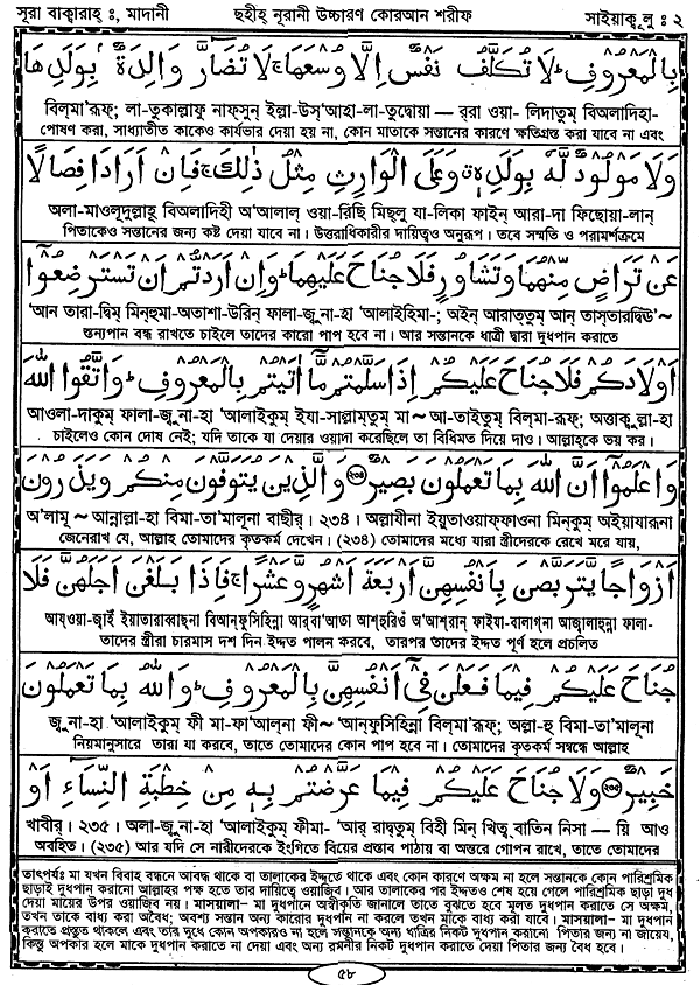 সূরা বাক্বারাহ্ ঃ, মাদানী ছহীহ্ নূরানী উচ্চারণ কোরআন শরীফ সাইয়াক্বূলু ঃ ২
بِالْمَعْرُوْفِ ؕ لَا تُكَلَّفُ نَفْسٌ اِلَّا وُسْعَهَا ۚ لَا تُضَآرَّ وَالِدَةٌۢ بِوَلَدِهَا
বিল্‌মা'রূফ্; লা-তুকাল্লাফু নাফ্‌সুন্ ইল্লা-উস্'আহা-লা-তুদ্বোয়া — র্‌রা ওয়া- লিদাতুম্ বিঅলাদিহা-
পোষণ করা, সাধ্যাতীত কাকেও কার্যভার দেয়া হয় না, কোন মাতাকে সন্তানের কারণে ক্ষতিগ্রস্ত করা যাবে না এবং
وَلَا مَوْلُوْدٌ لَّهٗ بِوَلَدِهٖ ۗ وَعَلَى الْوَارِثِ مِثْلُ ذٰلِكَ ۚ فَاِنْ اَرَادَا فِصَالًا
অলা-মাওলূদুল্লাহূ বিঅলাদিহী অ'আলাল্ ওয়া-রিছি মিছ্‌লু যা-লিকা ফাইন্ আরা-দা ফিছোয়া-লান্
পিতাকেও সন্তানের জন্য কষ্ট দেয়া যাবে না। উত্তরাধিকারীর দায়িত্বও অনুরূপ। তবে সম্মতি ও পরামর্শক্রমে
عَنْ تَرَاضٍ مِّنْهُمَا وَتَشَاوُرٍ فَلَا جُنَاحَ عَلَيْهِمَا ؕ وَاِنْ اَرَدْتُّمْ اَنْ تَسْتَرْضِعُوْٓا
'আন তারা-দ্বিম্ মিন্‌হুমা-অতাশা-উরিন্ ফালা-জুনা-হা 'আলাইহিমা-; অইন্ আরাত্‌তুম্ আন্ তাস্‌তারদ্বি'ঊ~
শুন্যপান বন্ধ রাখতে চাইলে তাদের কারো পাপ হবে না। আর সন্তানকে ধাত্রী দ্বারা দুধপান করাতে
اَوْلَادَكُمْ فَلَا جُنَاحَ عَلَيْكُمْ اِذَا سَلَّمْتُمْ مَّآ اٰتَيْتُمْ بِالْمَعْرُوْفِ ؕ وَاتَّقُوا اللّٰهَ
আওলা-দাকুম্ ফালা-জুনা-হা 'আলাইকুম্ ইযা-সাল্লাম্‌তুম্ মা ~ আ-তাইতুম্ বিল্‌মা-রূফ্; অত্তাকুল্লা-হা
চাইলেও কোন দোষ নেই; যদি তাকে যা দেয়ার ওয়াদা করেছিলে তা বিধিমত দিয়ে দাও। আল্লাহ্‌কে ভয় কর।
وَاعْلَمُوْٓا اَنَّ اللّٰهَ بِمَا تَعْمَلُوْنَ بَصِيْرٌ ۝ وَالَّذِيْنَ يُتَوَفَّوْنَ مِنْكُمْ وَيَذَرُوْنَ
অ'লামূ ~ আন্নাল্লা-হা বিমা-তা'মালূনা বাছীর্। ২৩৪। অল্লাযীনা ইয়ুতাওয়াফ্‌ফাওনা মিন্‌কুম্ অইয়াযারূনা
জেনেরাখ যে, আল্লাহ তোমাদের কৃতকর্ম দেখেন। (২৩৪) তোমাদের মধ্যে যারা স্ত্রীদেরকে রেখে মরে যায়,
اَزْوَاجًا يَّتَرَبَّصْنَ بِاَنْفُسِهِنَّ اَرْبَعَةَ اَشْهُرٍ وَّعَشْرًا ۚ فَاِذَا بَلَغْنَ اَجَلَهُنَّ فَلَا
আয্‌ওয়া-জাইঁ ইয়াতারাব্বাছ্‌না বিআন্‌ফুসিহিন্না আর্‌বা'আতা আশহুরিওঁ অ'আশ্‌রান্ ফাইযা-বালাগ্‌না আজালাহুন্না ফালা-
তাদের স্ত্রীরা চারমাস দশ দিন ইদ্দত পালন করবে, তারপর তাদের ইদ্দত পূর্ণ হলে প্রচলিত
جُنَاحَ عَلَيْكُمْ فِيْمَا فَعَلْنَ فِيْٓ اَنْفُسِهِنَّ بِالْمَعْرُوْفِ ؕ وَاللّٰهُ بِمَا تَعْمَلُوْنَ
জুনা-হা 'আলাইকুম্ ফী মা-ফা'আল্‌না ফী~ 'আন্‌ফুসিহিন্না বিল্‌মা'রূফ্; অল্লা-হু বিমা-তা'মালূনা
নিয়মানুসারে তারা যা করবে, তাতে তোমাদের কোন পাপ হবে না। তোমাদের কৃতকর্ম সম্বন্ধে আল্লাহ
خَبِيْرٌ ۝ وَلَا جُنَاحَ عَلَيْكُمْ فِيْمَا عَرَّضْتُمْ بِهٖ مِنْ خِطْبَةِ النِّسَآءِ اَوْ
খাবীর্। ২৩৫। অলা-জুনা-হা 'আলাইকুম্ ফীমা- 'আর্‌ রাদ্ব্‌তুম্ বিহী মিন্ খিত্ব্‌বাতিন নিসা — য়ি আও
অবহিত। (২৩৫) আর যদি সে নারীদেরকে ইংগিতে বিয়ের প্রস্তাব পাঠায় বা অন্তরে গোপন রাখে, তাতে তোমাদের
তাৎপর্যঃ মা যখন বিবাহ বন্ধনে আবদ্ধ থাকে বা তালাকের ইদ্দতে থাকে এবং কোন কারণে অক্ষম না হলে সন্তানকে কোন পারিশ্রমিক
ছাড়াই দুধপান করানো আল্লাহর পক্ষ হতে তার দায়িত্বে ওয়াজিব। আর তালাকের পর ইদ্দতও শেষ হয়ে গেলে পারিশ্রমিক ছাড়া দুধ
দেয়া মায়ের উপর ওয়াজিব নয়। মাসয়ালা– মা দুধপানে অস্বীকৃতি জানালে তাতে বুঝতে হবে মূলত দুধপান করাতে সে অক্ষম,
তখন তাকে বাধ্য করা অবৈধ; অবশ্য সন্তান অন্য কারোর দুধপান না করলে তখন মাকে বাধ্য করা যাবে। মাসয়ালা– মা দুধপান
করাতে প্রস্তুত থাকলে এবং তার দুধে কোন অপকারও না হলে সন্তানকে অন্য ধাত্রির নিকট দুধপান করানো পিতার জন্য না জায়েয,
কিন্তু অপকার হলে মাকে দুধপান করাতে না দেয়া এবং অন্য রমনীর নিকট দুধপান করাতে দেয়া পিতার জন্য বৈধ হবে।
৫৮